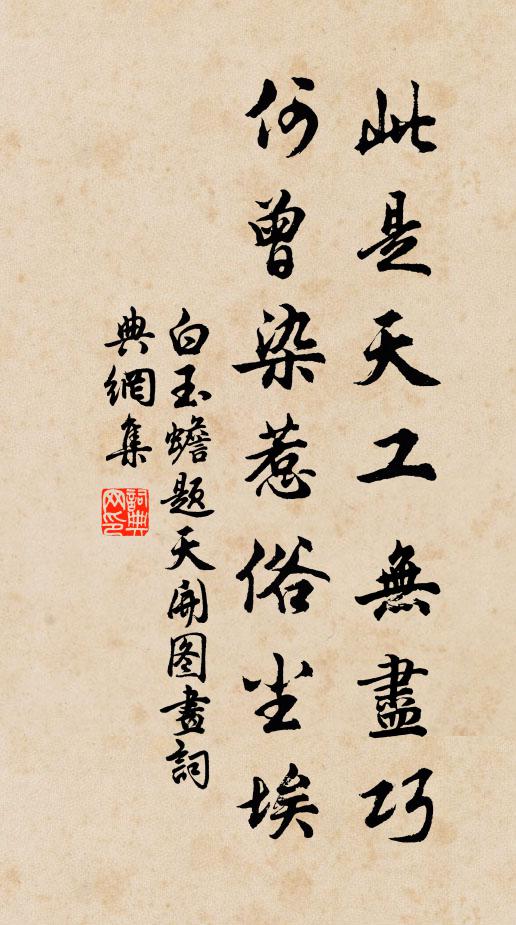 此是天工無盡巧
何曾染惹俗尘埃
白玉蟾题天開图畫詞
典網集
詞典网印